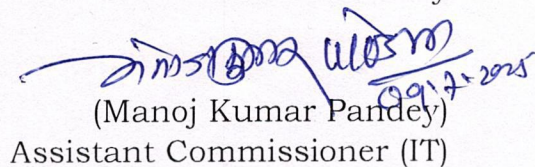 09.7.2025
(Manoj Kumar Pandey)
Assistant Commissioner (IT)